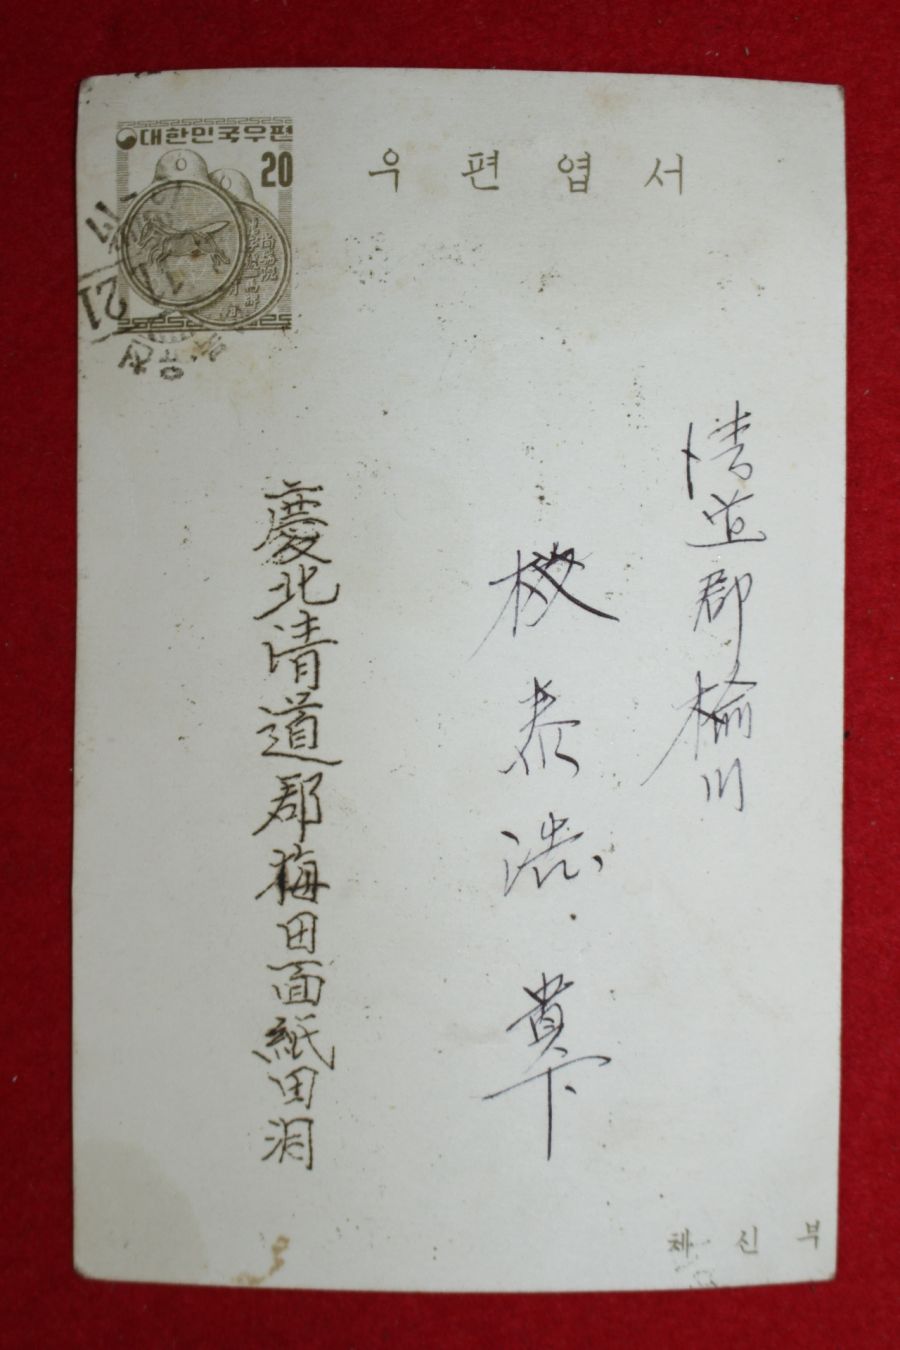 대한민국우편
20
우편엽서
17
21
유천
淸道郡楡川
泰
貴下
慶北淸道郡梅田面紙田洞
체신부